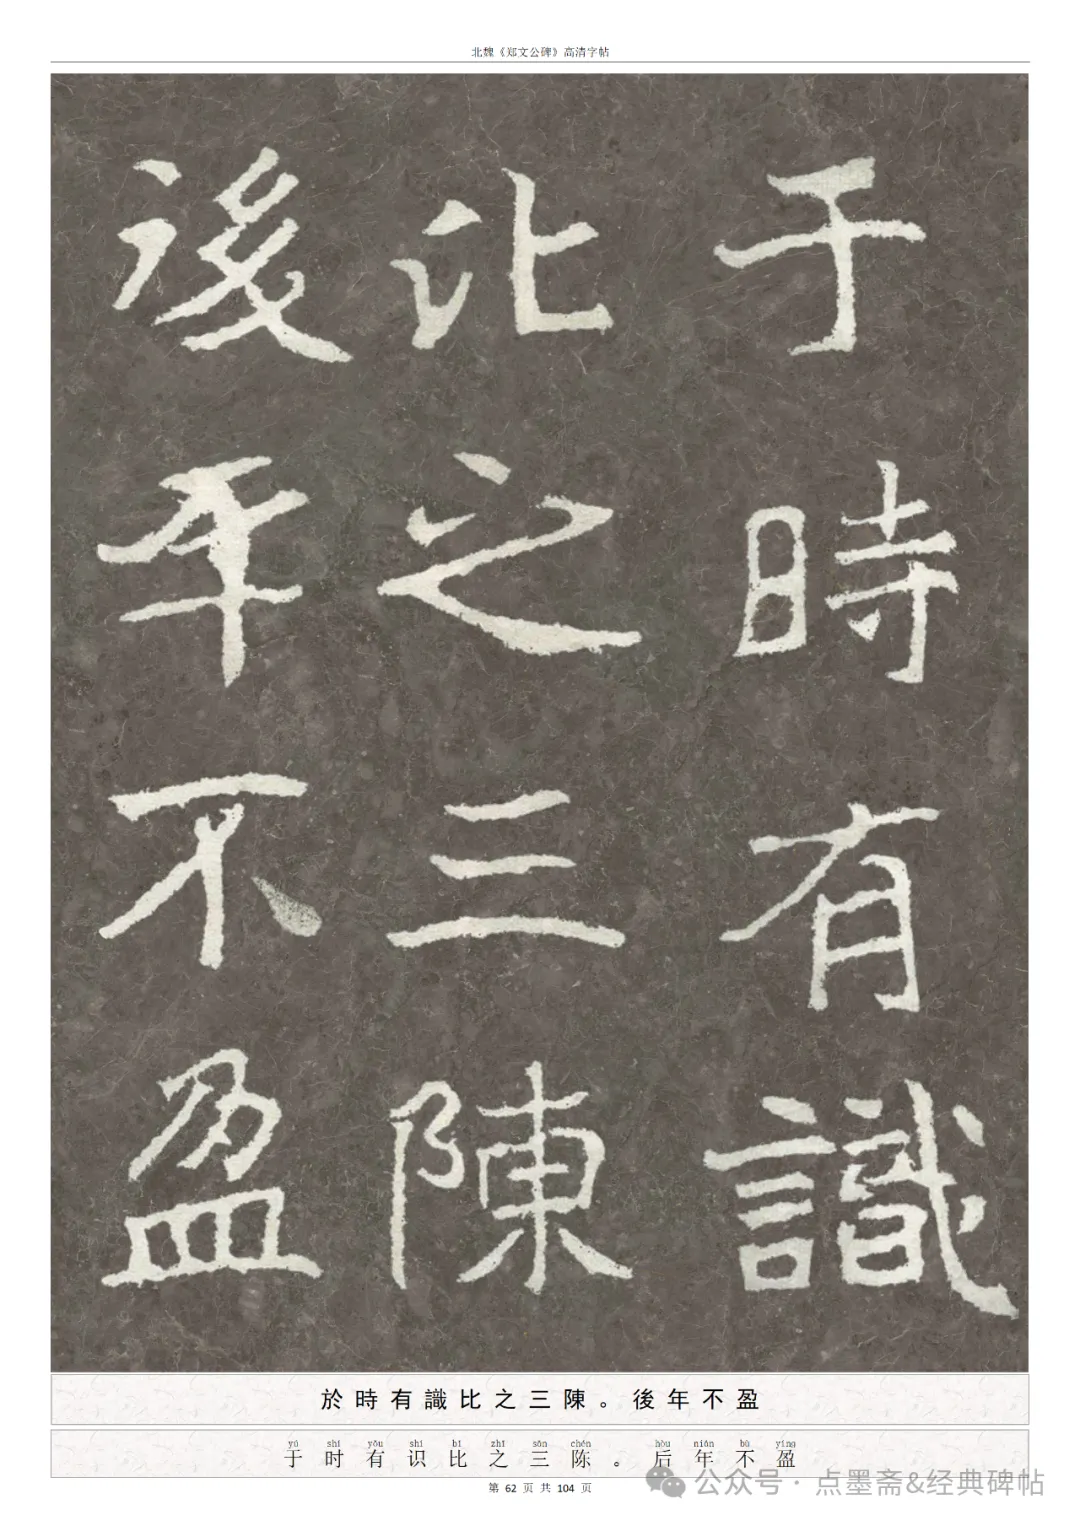 北魏《郑文公碑》高清字帖
于時有識
比之三陳
後年不盈
於時有識比之三陳。後年不盈
yú shí yǒu shí bǐ zhī sān chén hòu nián bù yíng
于时有识比之三陈。后年不盈
第 62 页 共 104 页
公众号 · 点墨斋&经典碑帖